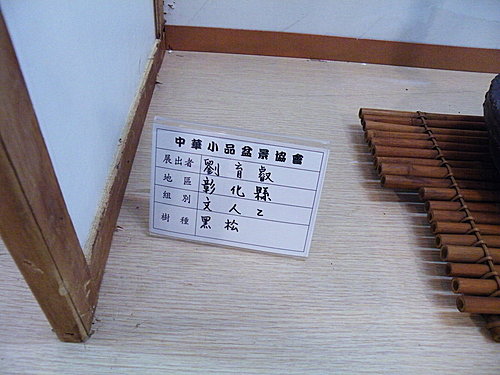 中華小品盆景協會
展出者 劉育叡
地區 彰化縣
組別 文人乙
樹種 黑松